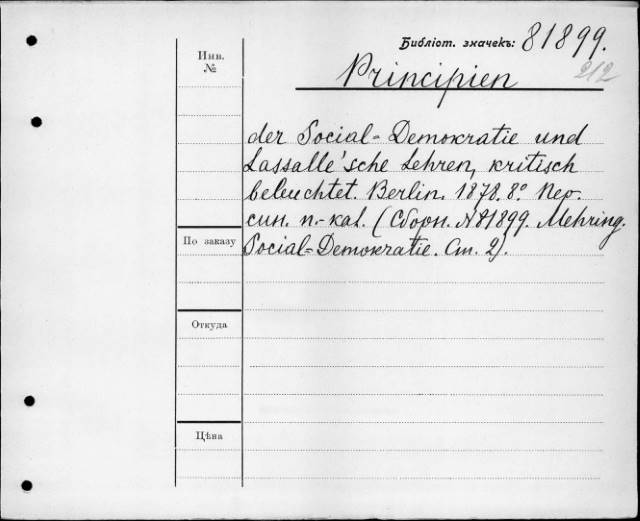 Библіот. значекъ: 81899.
212
Инв. №
Principien
der Social-Demokratie und
Lassalle'sche Lehren, kritisch
beleuchtet. Berlin. 1878. 8º. Пер.
син. п.-каl. (Сборн. №81899. Mehring.
По заказу
Social-Demokratie. Ст. 2).
Откуда
Цѣна